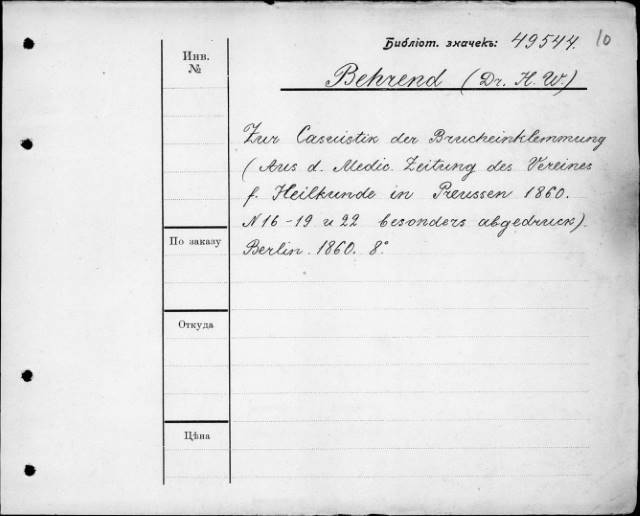 Библіот. значекъ: 49544. 10
Инв.
№
Behrend (Dr. H. W.)
Zur Casuistik der Brucheinklemmung
(Aus d. Medic. Zeitung des Vereines
f. Heilkunde in Preussen 1860.
N 16-19 u 22 besonders abgedruck).
Berlin. 1860. 8°
По заказу
Откуда
Цѣна